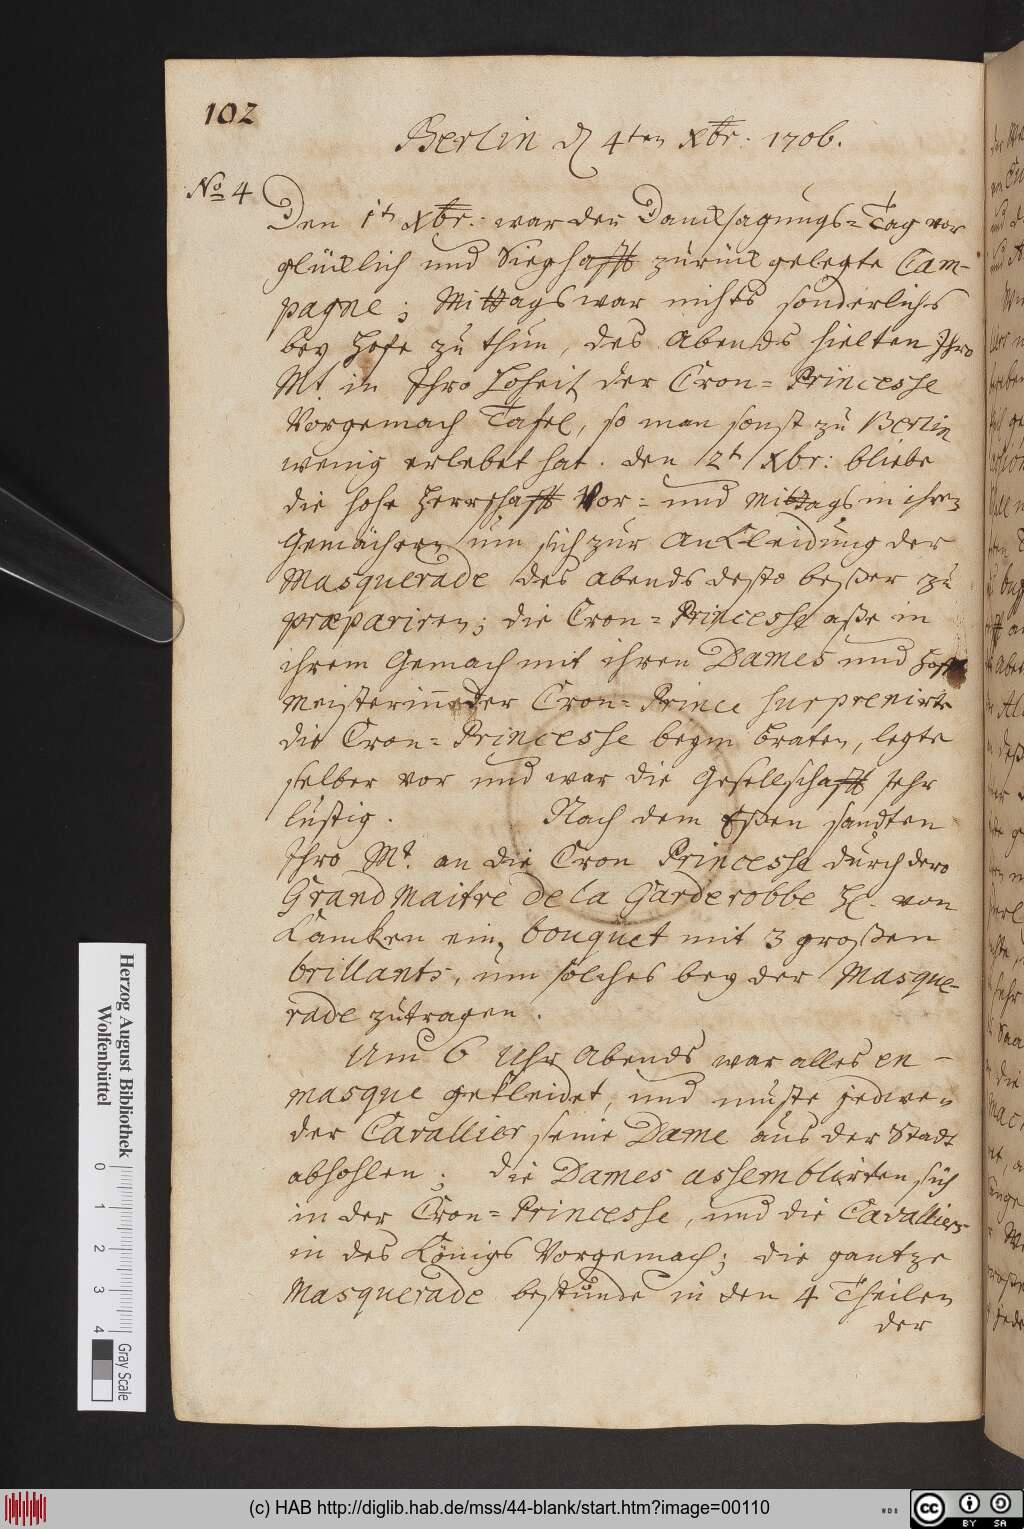 102
Berlin d 4ten xbr. 1706.
No 4
Den 1t xbr. war der Dancksagungs-Tag vor
glücklich und Sieghafft zurück gelegte Cam-
pagne; Mittags war nichts sonderlichs
bey Hofe zu thun, des Abends hielten Ihro
Mt. in Ihro Hoheit der Cron-Princesse
Vorgemach Tafel, so man sonst zu Berlin
wenig erlebet hat. den 2t xbr: bliebe
die hohe Herrschafft Vor- und Mittags in ihren
Gemächern um sich zur Ankleidung der
Masquerade des abends desto beßer zu
præpariren; die Cron-Princesse aße in
ihrem Gemach mit ihren Dames und Hoff
meisterin, der Cron-Prince surprenirte
die Cron-Princesse beym braten, legte
selber vor und war die Gesellschafft sehr
lustig. Nach dem Eßen sandten
Ihro Mt. an die Cron Princesse durch dero
Grand Maitre de la Garderobbe H. von
Kamken ein bouquet mit 3 großen
brillants, um solches bey der Masque-
rade zutragen.
Um 6 Uhr Abends war alles en-
masque gekleidet, und muste jedwe-
der Cavallier seine Dame aus der Stadt
abhohlen; die Dames assemblirten sich
in der Cron-Princesse, und die Cavalliers
in des Königs Vorgemach; die gantze
Masquerade bestunde in den 4 Theilen
der
Herzog August Bibliothek
Wolfenbüttel
0 1 2 3 4
Gray Scale
(c) HAB http://diglib.hab.de/mss/44-blank/start.htm?image=00110
WDB
cc BY SA